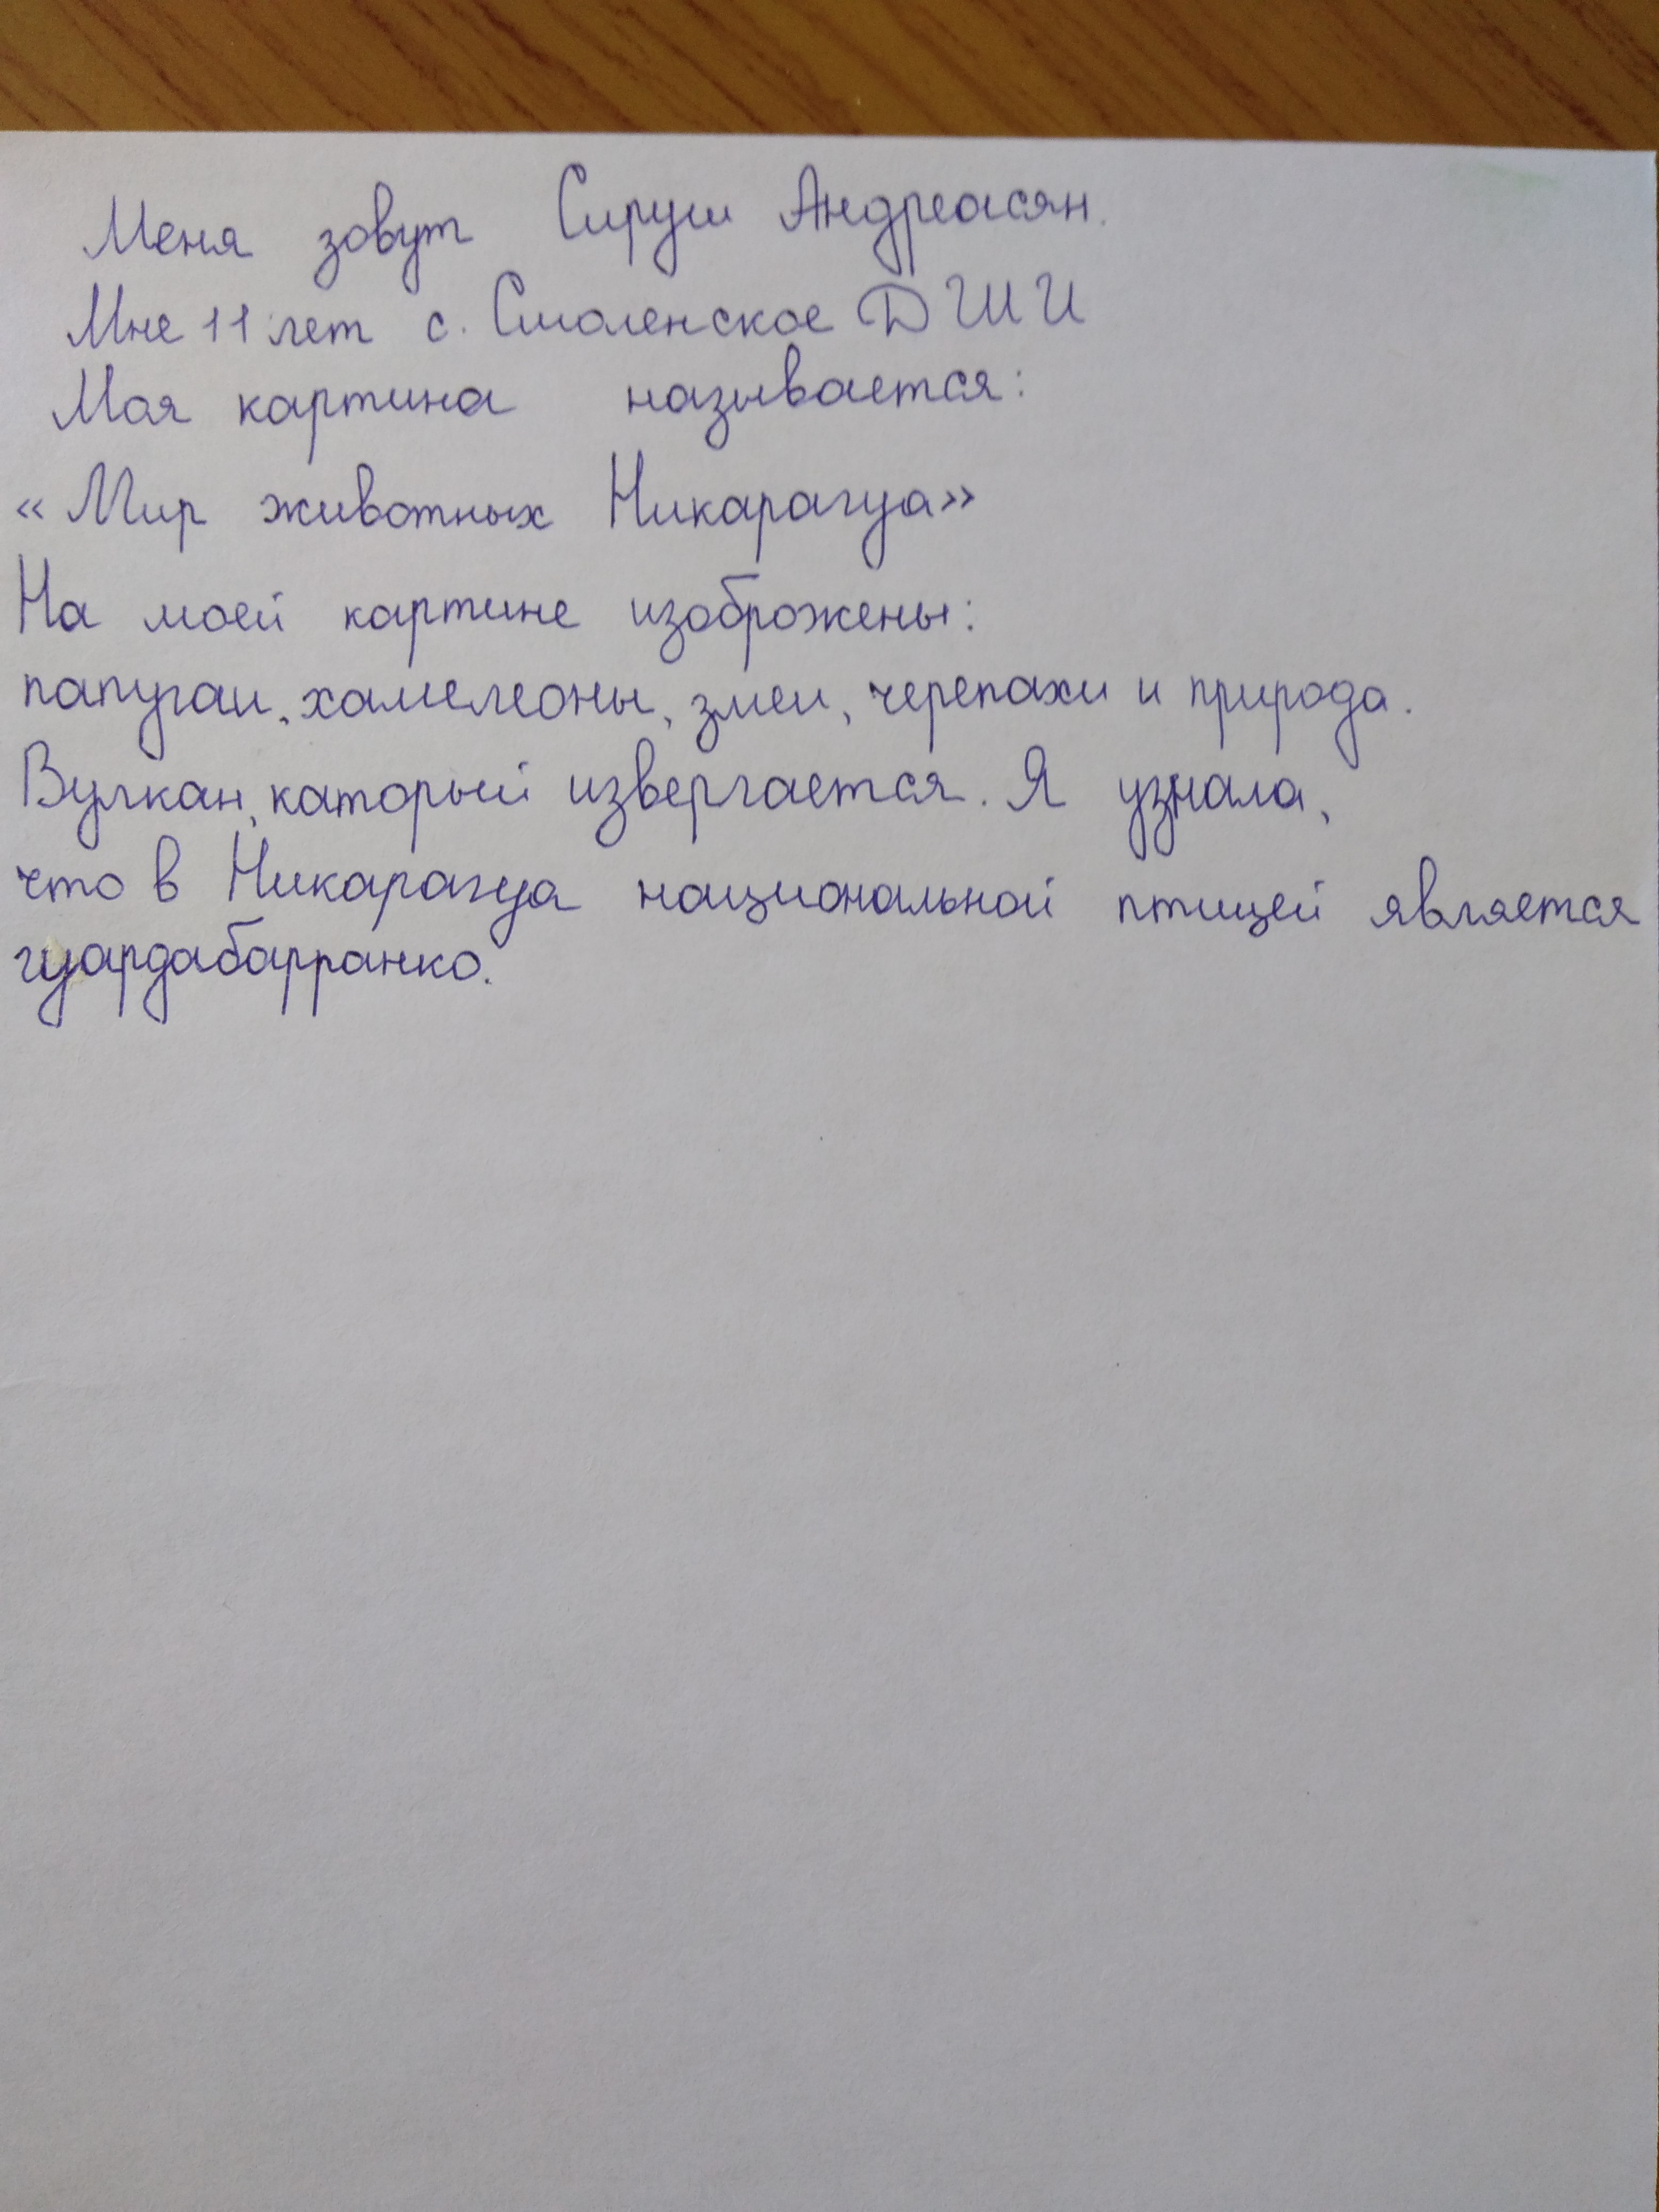 Меня зовут Сируш Андреасян.
Мне 11 лет с. Смоленское ДШИ
Моя картина называется:
«Мир животных Никарагуа»
На моей картине изоброжены:
папугаи, хамелеоны, змеи, черепахи и природа.
Вулкан, каторый извергается. Я узнала,
что в Никарагуа национальной птицей является
гуардабарранко.